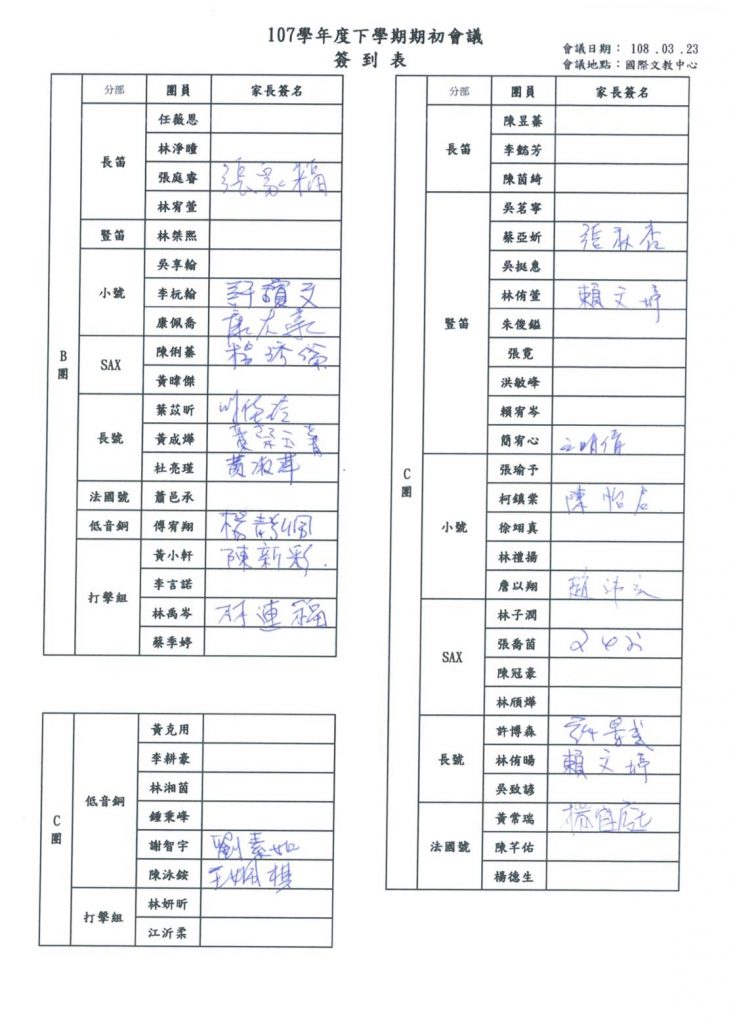 107學年度下學期期初會議
簽到表
會議日期： 108 .03 .23
會議地點：國際文教中心
B團
分部 團員 家長簽名
長笛
任薇恩
林淨瞳
張庭睿
林宥萱
豎笛
林桀熙
小號
吳享翰
李杬翰 許瓊文
康佩喬
SAX
陳俐蓁
黃暐傑
長號
葉苡昕
黃成燁
杜亮瑾 黃淑萍
法國號
蕭邑承
低音銅
傅宥翔 楊靜佩
打擊組
黃小軒 陳新彩
李言諾
林禹岑
蔡季婷
C團
低音銅
黃克用
李耕豪
林湘茵
鍾秉峰
謝智宇 劉素如
陳泳銨 王姵棋
打擊組
林妍昕
江沂柔
C團
分部 團員 家長簽名
長笛
陳昱蓁
李懿芳
陳茵綺
豎笛
吳茗寧
蔡亞妡 張秋杏
吳挺惠
林侑萱 賴文婷
朱俊鎰
張霓
洪敏峰
賴宥岑
簡宥心
小號
張瑜予
柯鎮棠 陳怡君
徐翊真
林禮揚
詹以翔
SAX
林子潤
張喬茵
陳冠豪
林頎燁
長號
許博森
林侑暘 賴文婷
吳致諺
法國號
黃常瑞
陳芊佑
楊德生